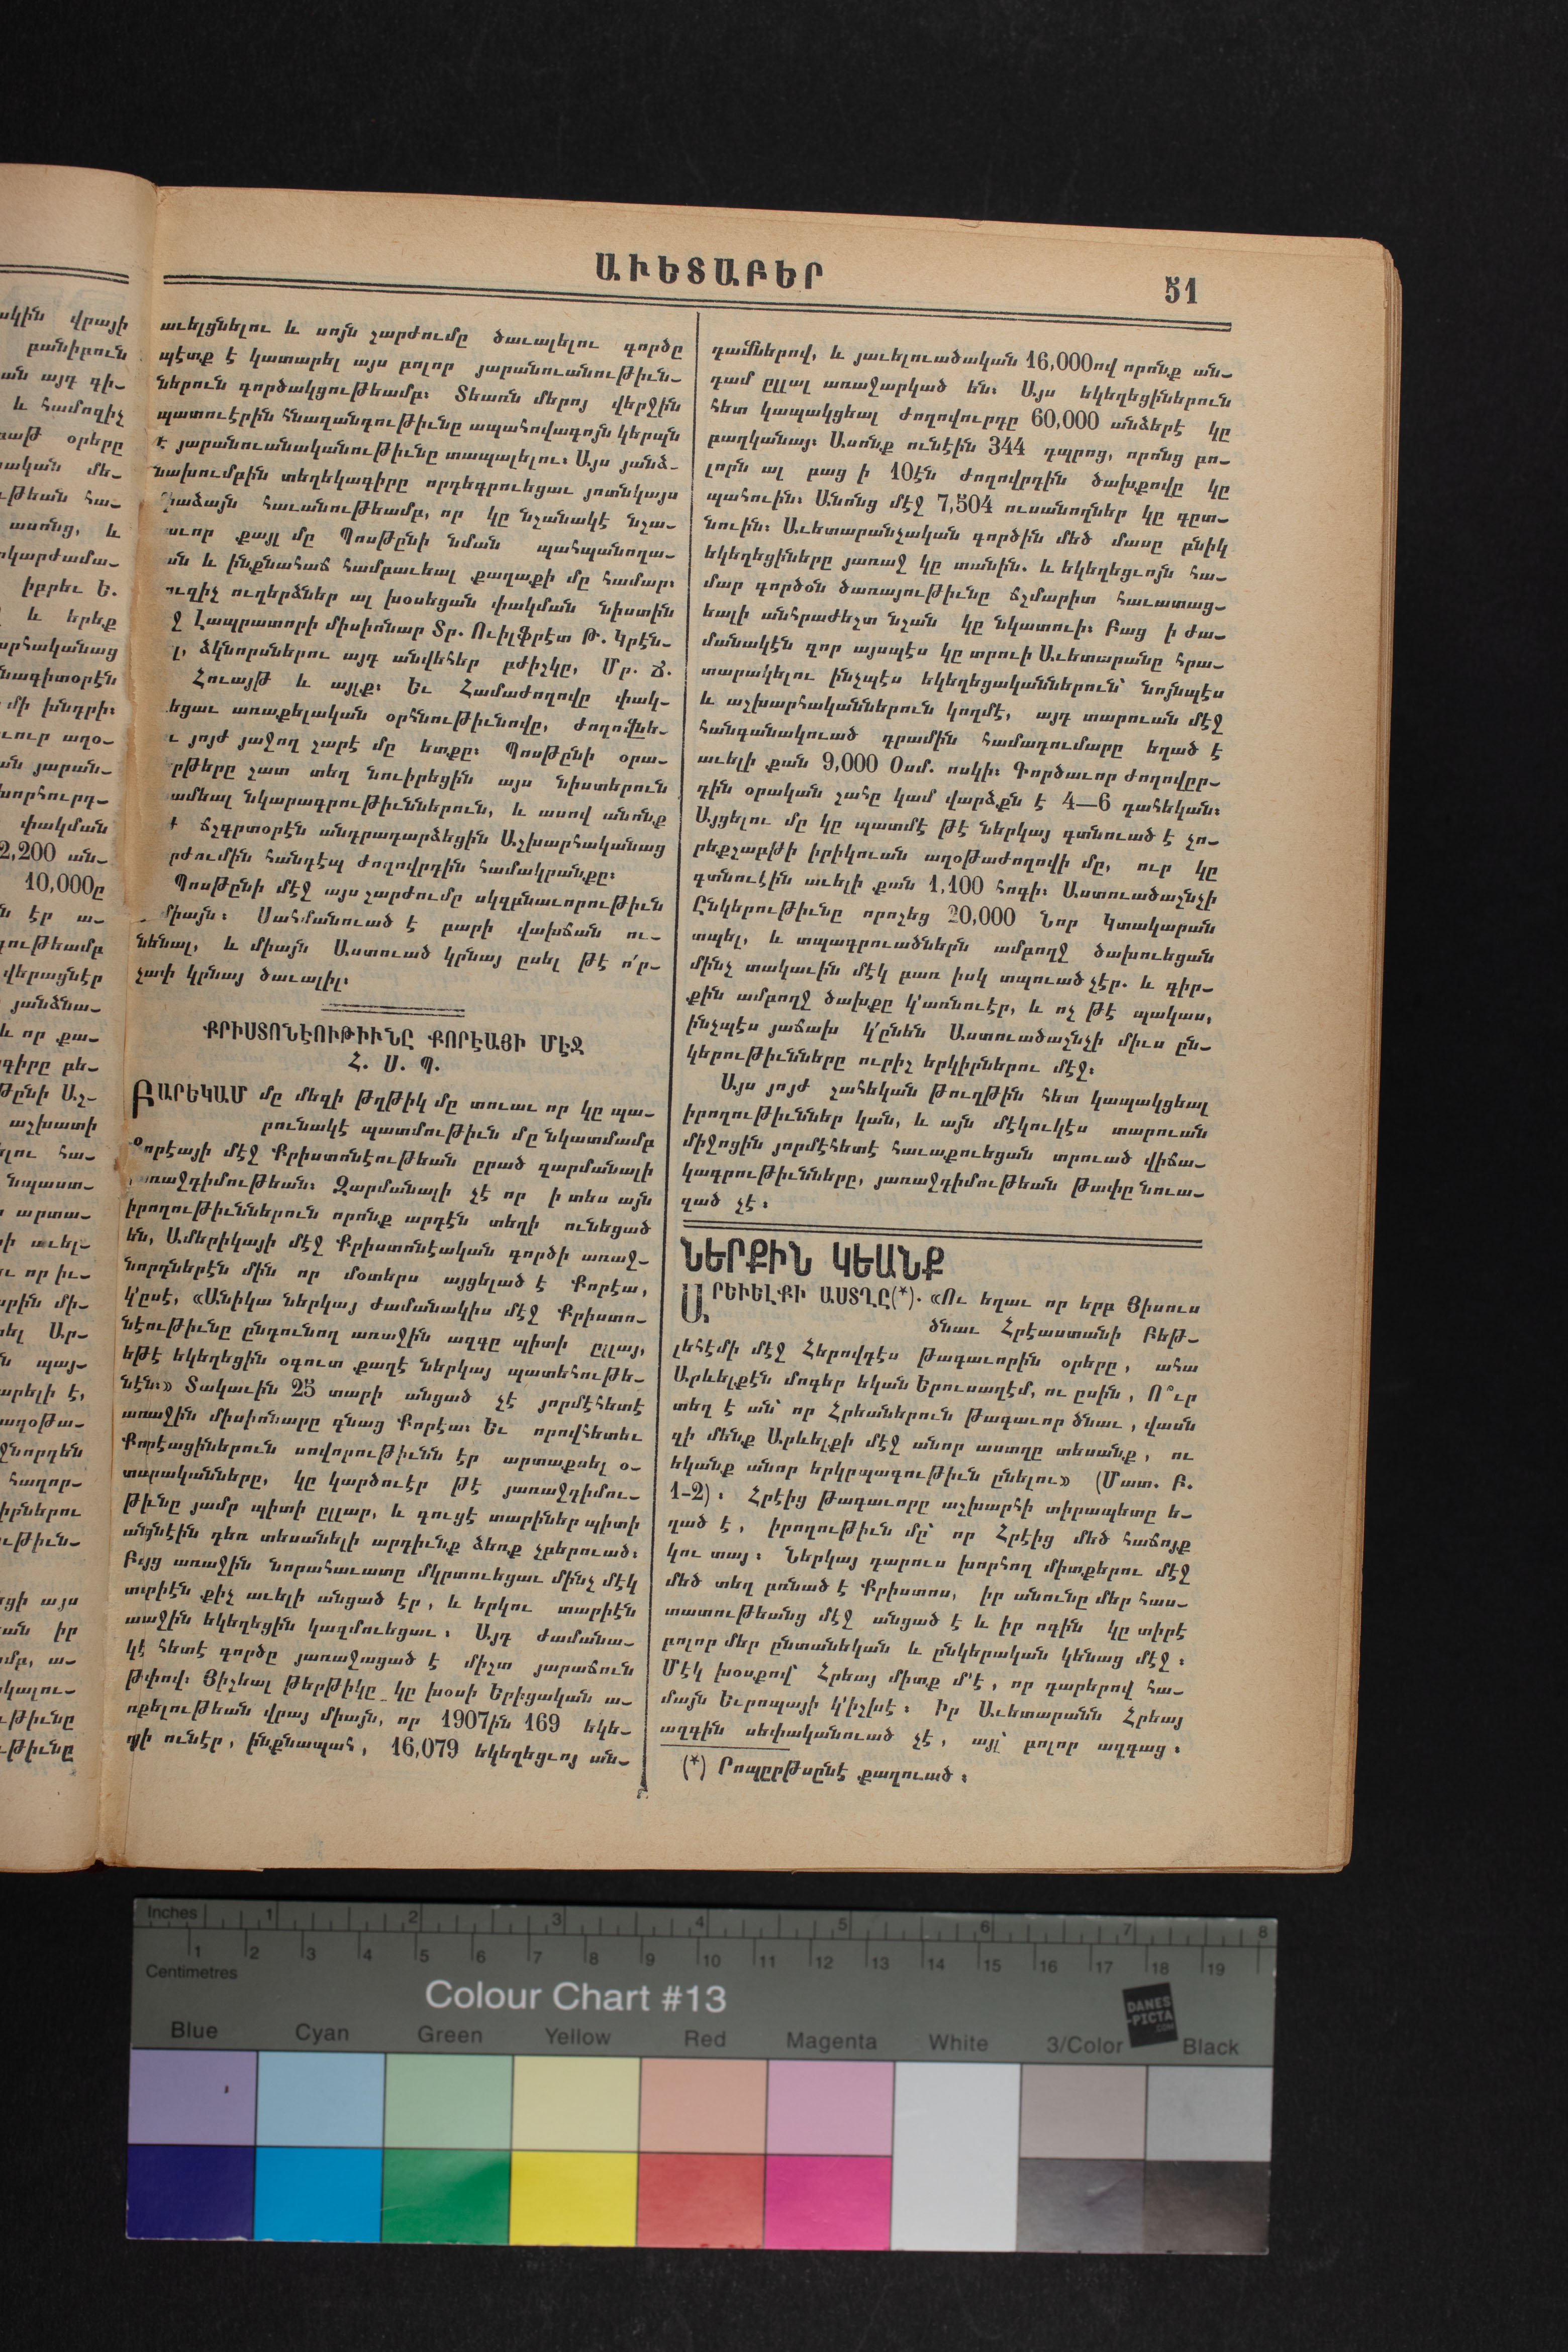 ԱՒԵՏԱԲԵՐ
51
սկին վրայի
բանիբուն
ան այդ գի-
և համոզիչ
օրերը
ական մե-
ւթեան հա-
ասոնց, և
րկարժամա-
իբրեւ Ե.
և երեք
արհականաց
նագիտօրէն
մի խնդրի։
ւուր աղօ-
ան յարան-
խորհուրդ-
փակման
2,200 ան-
10,000ը
ն էր ա-
գութեամբ
վերացնէր
յանձնա-
և որ քա-
գիրը բե-
թընի Աշ-
աշխատի
ելու հա-
նպաստ-
արտա-
ի աւել-
որ իւ-
արին մի-
սել Ար-
ն պայ-
արելի է,
աղօթա-
ջնորդեն
հաղոր-
իրներու
ւթիւն-
ցի այս
ան իր
ամբ, ա-
կալու-
ւթիւնը
ւթիւնը
աւելցնելու և սոյն շարժումը ծաւալելու գործը
պէտք է կատարել այս բոլոր յարանուանութիւն-
ներուն գործակցութեամբ։ Տեառն մերոյ վերջին
պատուէրին հնազանդութիւնը ապահովագոյն կերպն
է յարանուանականութիւնը տապալելու։ Այս յանձ-
նախումբին տեղեկագիրը որդեգրուեցաւ յոտնկայս
միաձայն հաւանութեամբ, որ կը նշանակէ նշա-
աւոր քայլ մը Պոսթընի նման պահպանողա-
ան և ինքնահաճ համբաւեալ քաղաքի մը համար։
ուզիչ ուղերձներ ալ խօսեցան փակման նիստին
ջ Լապրատորի միսիոնար Տր. Ուիլֆրէտ Թ. Կրէն-
լ, ձկնորսներու այդ անվեհեր բժիշկը, Մր. Ճ.
Հուայթ և այլք։ Եւ Համաժողովը փակ-
եցաւ առաքելական օրհնութիւնովը, ժողովնե-
ւ յոյժ յաջող շարէ մը ետքը։ Պոսթընի օրա-
րթերը շատ տեղ նուիրեցին այս նիստերուն
ամեալ նկարագրութիւններուն, և ասով անոնք
է ճշգրտօրէն անդրադարձեցին Աշխարհականաց
րժումին հանդէպ ժողովրդին համակրանքը։
Պոսթընի մէջ այս շարժումը սկզբնաւորութիւն
միայն։ Սահմանուած է բարի վախճան ու-
նենալ, և միայն Աստուած կրնայ ըսել թէ ո՛ր-
չափ կրնայ ծաւալիլ։
ՔՐԻՍՏՈՆԷՈՒԹԻՒՆԸ ՔՈՐԷԱՅԻ ՄԷՋ
Հ. Ս. Պ.
ԲԱՐԵԿԱՄ մը մեզի թղթիկ մը տուաւ որ կը պա-
րունակէ պատմութիւն մը նկատմամբ
Քորէայի մէջ Քրիստոնէութեան ըրած զարմանալի
յառաջդիմութեան։ Զարմանալի չէ որ ի տես այն
իրողութիւններուն որոնք արդէն տեղի ունեցած
են, Ամերիկայի մէջ Քրիստոնէական գործի առաջ-
նորդներէն մին որ մօտերս այցելած է Քորէա,
կ՚ըսէ, «Անիկա ներկայ ժամանակիս մէջ Քրիստո-
նէութիւնը ընդունող առաջին ազգը պիտի ըլլայ,
եթէ եկեղեցին օգուտ քաղէ ներկայ պատեհութե-
նէն։» Տակաւին 25 տարի անցած չէ յորմէհետէ
առաջին միսիոնարը գնաց Քորէա։ Եւ որովհետեւ
Քորէացիներուն սովորութիւնն էր արտաքսել օ-
տարականները, կը կարծուէր թէ յառաջդիմու-
թիւնը յամր պիտի ըլլար, և գուցէ տարիներ պիտի
անցնէին դեռ տեսանելի արդիւնք ձեռք չբերուած։
Բայց առաջին նորահաւատը մկրտուեցաւ մինչ մէկ
տարիէն քիչ աւելի անցած էր, և երկու տարիէն
առաջին եկեղեցին կազմուեցաւ։ Այդ ժամանա-
կէ հետէ գործը յառաջացած է միշտ յարաճուն
թափով։ Յիշեալ թերթիկը կը խօսի Երիցական ա-
ռքելութեան վրայ միայն, որ 1907ին 169 եկե-
ղցի ունէր, ինքնապահ, 16,079 եկեղեցւոյ ան-
դամներով, և յաւելուածական 16,000ով որոնք ան-
դամ ըլլալ առաջարկած են։ Այս եկեղեցիներուն
հետ կապակցեալ ժողովուրդը 60,000 անձերէ կը
բաղկանայ։ Ասոնք ունէին 344 դպրոց, որոնց բո-
լորն ալ բաց ի 10էն ժողովրդին ծախքովը կը
պահուին։ Անոնց մէջ 7,504 ուսանողներ կը գըտ-
նուին։ Աւետարանչական գործին մեծ մասը բնիկ
եկեղեցիները յառաջ կը տանին. և եկեղեցւոյն հա-
մար գործօն ծառայութիւնը ճշմարիտ հաւատաց-
եալի անհրաժեշտ նշան կը նկատուի։ Բաց ի ժա-
մանակէն զոր այսպէս կը տրուի Աւետարանը հրա-
տարակելու ինչպէս եկեղեցականներուն՝ նոյնպէս
և աշխարհականներուն կողմէ, այդ տարուան մէջ
հանգանակուած դրամին համագումարը եղած է
աւելի քան 9,000 Օսմ. ոսկի։ Գործաւոր ժողովըր-
դին օրական շահը կամ վարձքն է 4—6 դահեկան։
Այցելու մը կը պատմէ թէ ներկայ գտնուած է չո-
րեքշաբթի իրիկուան աղօթաժողովի մը, ուր կը
գտնուէին աւելի քան 1,100 հոգի։ Աստուածաշնչի
Ընկերութիւնը որոշեց 20,000 Նոր Կտակարան
տպել, և տպագրուածներն ամբողջ ծախուեցան
մինչ տակաւին մէկ բառ իսկ տպուած չէր. և գիր-
քին ամբողջ ծախքը կ՚առնուէր, և ոչ թէ պակաս,
ինչպէս յաճախ կ՚ընեն Աստուածաշնչի միւս ըն-
կերութիւնները ուրիշ երկիրներու մէջ։
Այս յոյժ շահեկան թուղթին հետ կապակցեալ
իրողութիւններ կան, և այն մէկուկէս տարուան
միջոցին յորմէհետէ հաւաքուեցան տրուած վիճա-
կագրութիւնները, յառաջդիմութեան թափը նուա-
զած չէ։
ՆԵՐՔԻՆ ԿԵԱՆՔ
ԱՐԵՒԵԼՔԻ ԱՍՏՂԸ(*). «Ու եղաւ որ երբ Յիսուս
ծնաւ Հրէաստանի Բեթ-
լեհէմի մէջ Հերովդէս թագաւորին օրերը, ահա
Արևելքէն մոգեր եկան Երուսաղէմ, ու ըսին, Ո՞ւր
տեղ է ան՝ որ Հրեաներուն թագաւոր ծնաւ, վասն
զի մենք Արևելքի մէջ անոր աստղը տեսանք, ու
եկանք անոր երկրպագութիւն ընելու» (Մատ. Բ.
1-2)։ Հրէից թագաւորը աշխարհի տիրապետը ե-
ղած է, իրողութիւն մը՝ որ Հրէից մեծ հաճոյք
կու տայ։ Ներկայ դարուս խորհող միտքերու մէջ
մեծ տեղ բռնած է Քրիստոս, իր անունը մեր հաս-
տատութեանց մէջ անցած է և իր ոգին կը տիրէ
բոլոր մեր ընտանեկան և ընկերական կենաց մէջ։
Մէկ խօսքով՝ Հրեայ միտք մ՚է, որ դարերով հա-
մայն Եւրոպայի կ՚իշխէ։ Իր Աւետարանն Հրեայ
ազգին սեփականուած չէ, այլ բոլոր ազգաց։
(*) Րոպըրթսընէ քաղուած։
Inches 1 2 3 4 5 6 7 8
1 2 3 4 5 6 7 8 9 10 11 12 13 14 15 16 17 18 19
Centimetres
Colour Chart #13
DANES
-PICTA
.COM
Blue Cyan Green Yellow Red Magenta White 3/Color Black